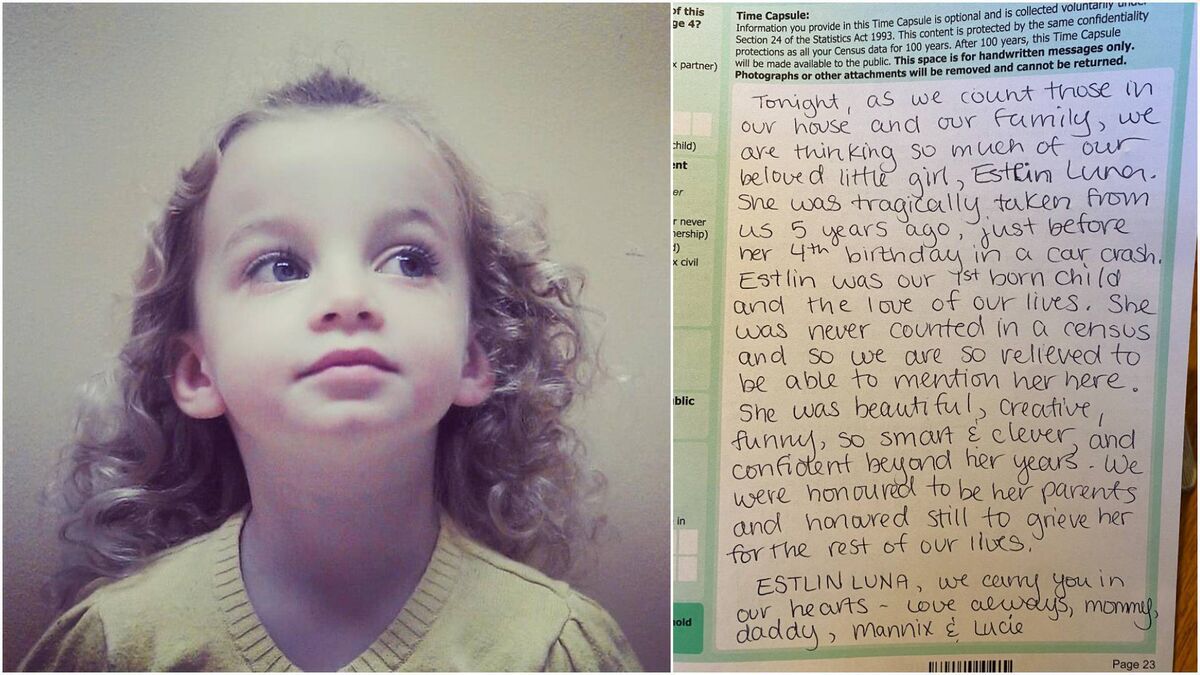 of this
ge 4?
x partner)
child)
ent
er
r never
nership)
d)
x civil
blic
in
old
Time Capsule:
Information you provide in this Time Capsule is optional and is collected voluntarily under
Section 24 of the Statistics Act 1993. This content is protected by the same confidentiality
protections as all your Census data for 100 years. After 100 years, this Time Capsule
will be made available to the public. This space is for handwritten messages only.
Photographs or other attachments will be removed and cannot be returned.
Tonight, as we count those in
our house and our family, we
are thinking so much of our
beloved little girl, Estlin Luna.
She was tragically taken from
us 5 years ago, just before
her 4th birthday in a car crash.
Estlin was our 1st born child
and the love of our lives. She
was never counted in a census
and so we are so relieved to
be able to mention her here.
She was beautiful, creative,
funny, so smart & clever, and
confident beyond her years. We
were honoured to be her parents
and honoured still to grieve her
for the rest of our lives.
ESTLIN LUNA, we carry you in
our hearts - Love always, mommy,
daddy, Mannix & Lucie
Page 23